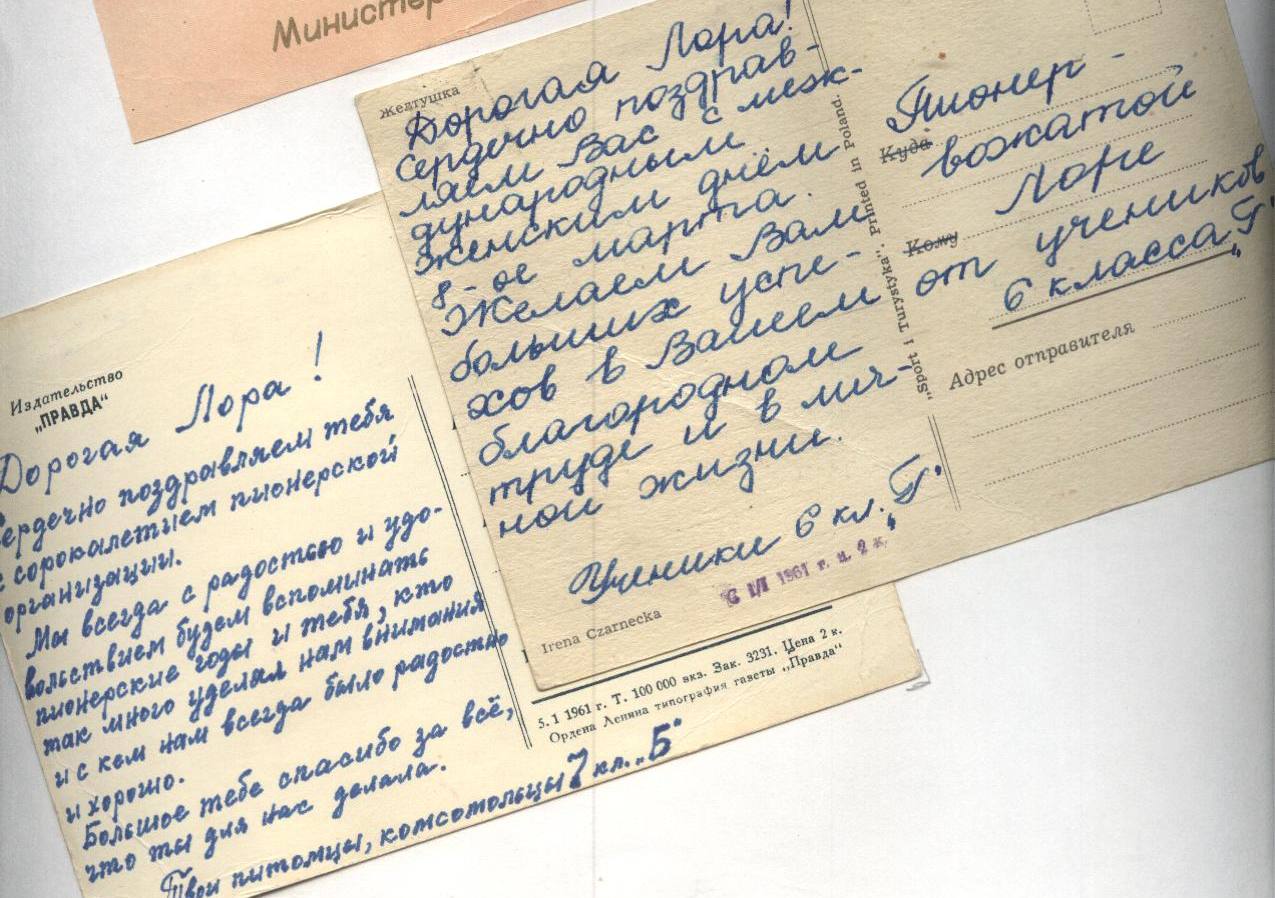 Министер
Желтушка
Дорогая Лора!
Сердечно поздрав-
ляем Вас с меж-
дународным
женским днём
8-ое марта.
Желаем Вам
больших успе-
хов в Вашем
благородном
труде и в лич-
ной жизни.
Ученики 6 кл. „Г“
6 III 1961 г. ц. 2 к.
Irena Czarnecka
„Sport i Turystyka“. Printed in Poland.
Пионер-
Куда
вожатой
Лоре
Кому
от учеников
6 класса „Г“
Адрес отправителя
Издательство
„ПРАВДА“
Дорогая Лора!
Сердечно поздравляем тебя
с сорокалетием пионерской
организации.
Мы всегда с радостью и удо-
вольствием будем вспоминать
пионерские годы и тебя, кто
так много уделял нам внимания
и с кем нам всегда было радостно
и хорошо.
Большое тебе спасибо за всё,
что ты для нас делала.
Твои питомцы, комсомольцы 7 кл. „Б“
5. 1 1961 г. Т. 100 000 экз. Зак. 3231. Цена 2 к.
Ордена Ленина типография газеты „Правда“